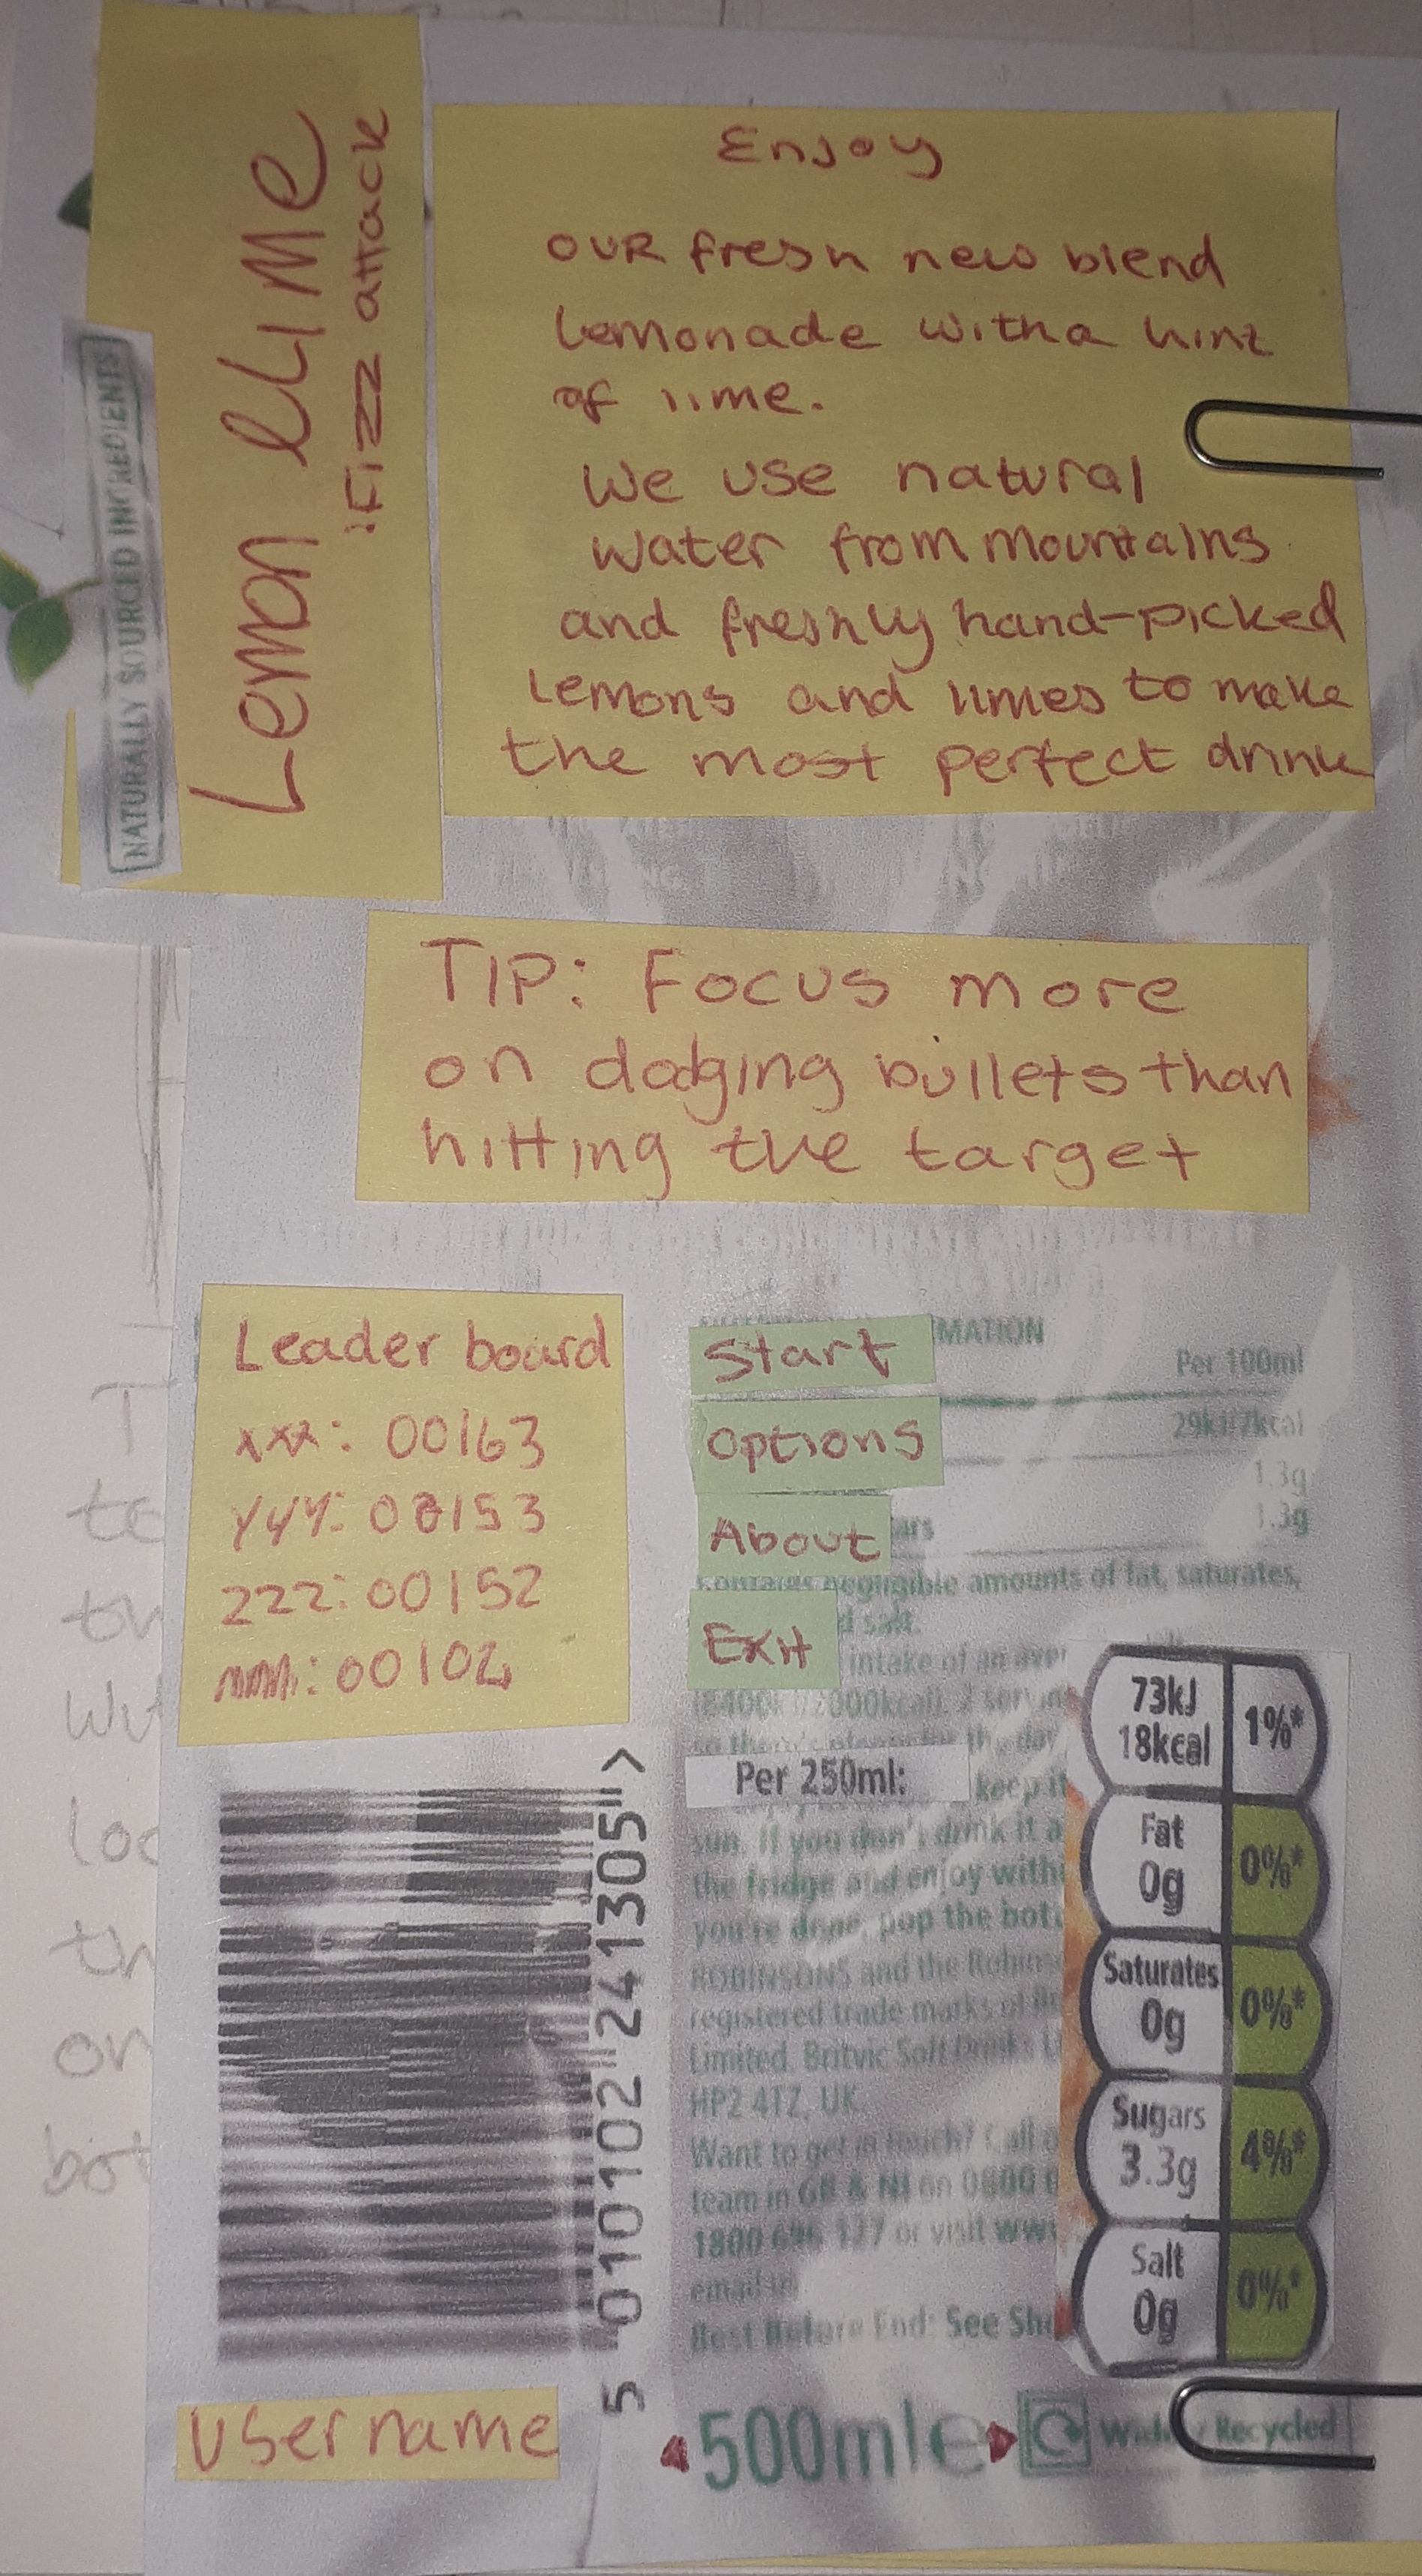 Lemon & LiME
!Fizz attack
NATURALLY SOURCED INGREDIENTS
Enjoy
OUR fresh new blend
Lemonade with a hint
of lime.
We use natural
water from mountains
and freshly hand-picked
Lemons and limes to make
the most perfect drink
TIP: Focus more
on dodging bullets than
hitting the target
Leader board
xxx: 00163
YYY: 00153
ZZZ: 00152
00102
Start
Options
About
Exit
MATION
Per 100ml
29kJ/7kcal
1.3g
1.3g
negligible amounts of fat, saturates,
salt.
intake of an
(8400kJ/2000kcal). 2
Per 250ml:
keep it
sun. If you don't drink it a
the fridge and enjoy with
you're done, pop the bot
ROBINSONS and the Robin
registered trade marks of
Limited. Britvic Soft Drinks
HP2 4TZ, UK
Want to get in touch? Call
team in GB & NI on 0800
1800 696 127 or visit www
email
Best Before End: See Sh
73kJ
18kcal
1%*
Fat
0g
0%*
Saturates
0g
0%*
Sugars
3.3g
4%*
Salt
0g
0%*
5 010102 241305 >
username
500mle
Widely Recycled
T
to
th
wit
loo
th
on
bot